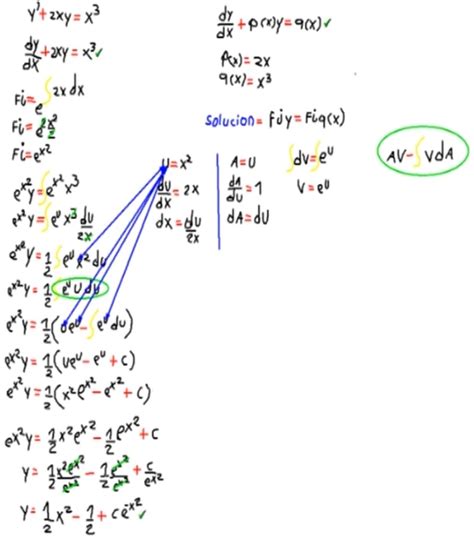 y' + 2xy = x³
dy/dx + 2xy = x³ ✓
Fi = e^∫2x dx
Fi = e^(2x²/2)
Fi = e^x²
e^x² y = ∫e^x² x³
e^x² y = ∫e^u x³ du/2x
e^x² y = 1/2 ∫e^u x² du
e^x² y = 1/2 ∫e^u u du
e^x² y = 1/2 (ue^u - ∫e^u du)
e^x² y = 1/2 (ue^u - e^u + c)
e^x² y = 1/2 (x² e^x² - e^x² + c)
e^x² y = 1/2 x² e^x² - 1/2 e^x² + c
y = 1/2 x² e^x²/e^x² - 1/2 e^x²/e^x² + c/e^x²
y = 1/2 x² - 1/2 + ce^-x² ✓
dy/dx + p(x)y = q(x) ✓
p(x) = 2x
q(x) = x³
Solucion = Fi y = Fi q(x)
u = x²
du/dx = 2x
dx = du/2x
A = u
dA/du = 1
dA = du
∫dv = ∫e^u
v = e^u
AV - ∫VdA